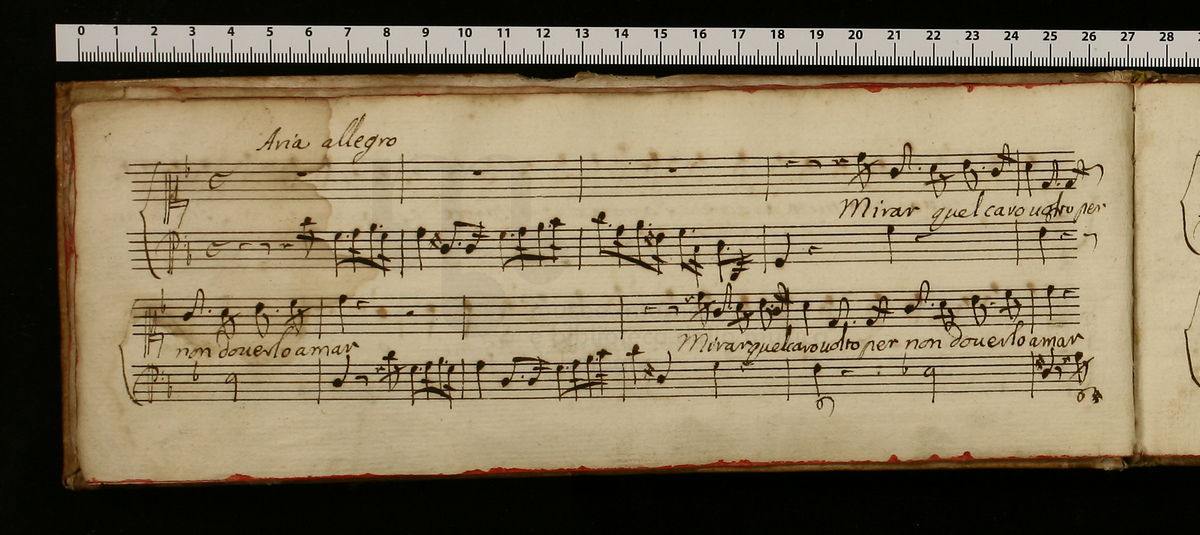 0 1 2 3 4 5 6 7 8 9 10 11 12 13 14 15 16 17 18 19 20 21 22 23 24 25 26 27 28
Aria allegro
Mirar quel caro uolto per
non douerlo amar
Mirar quel caro uolto per non douerlo amar